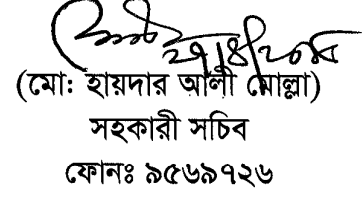 (মো: হায়দার আলী মোল্লা)
সহকারী সচিব
ফোনঃ ৯৫৬৯৭২৬